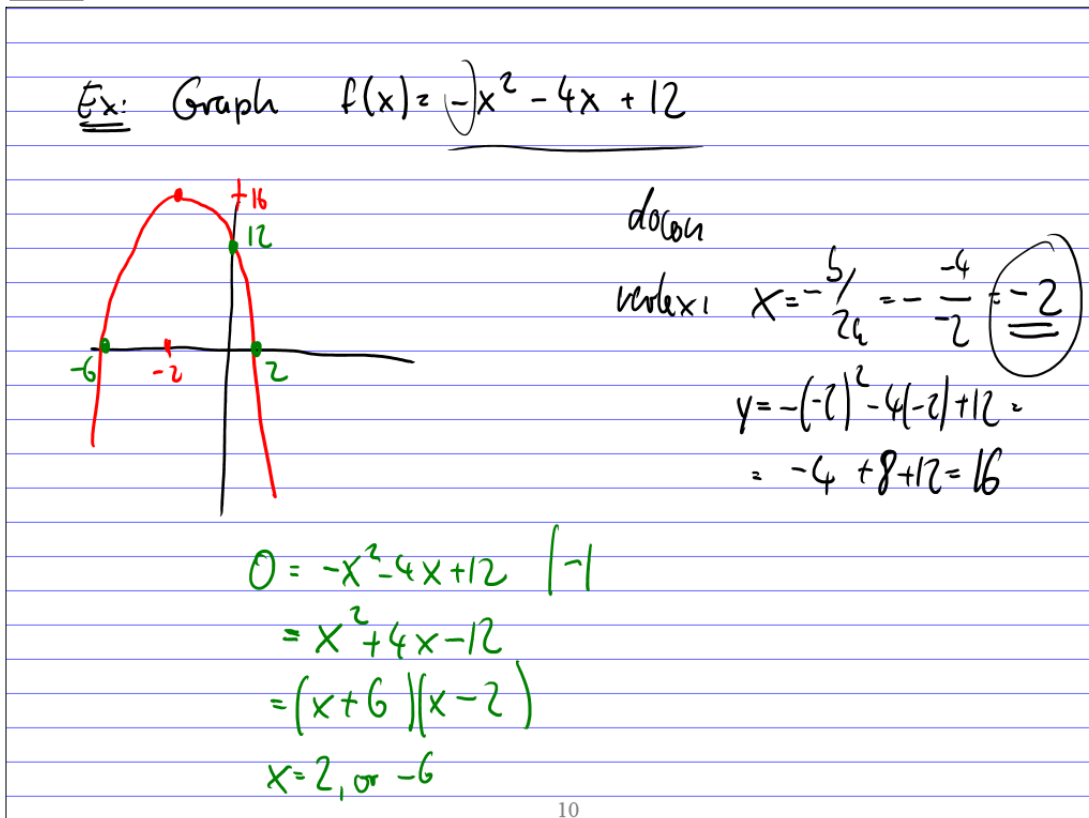 Ex: Graph f(x) = -x² - 4x + 12
16
12
-6 -2 2
down
vertex: x = -b/2a = - -4/-2 = -2
y = -(-2)² - 4(-2) + 12 =
= -4 + 8 + 12 = 16
0 = -x² - 4x + 12 | -1
= x² + 4x - 12
= (x + 6)(x - 2)
x = 2, or -6
10